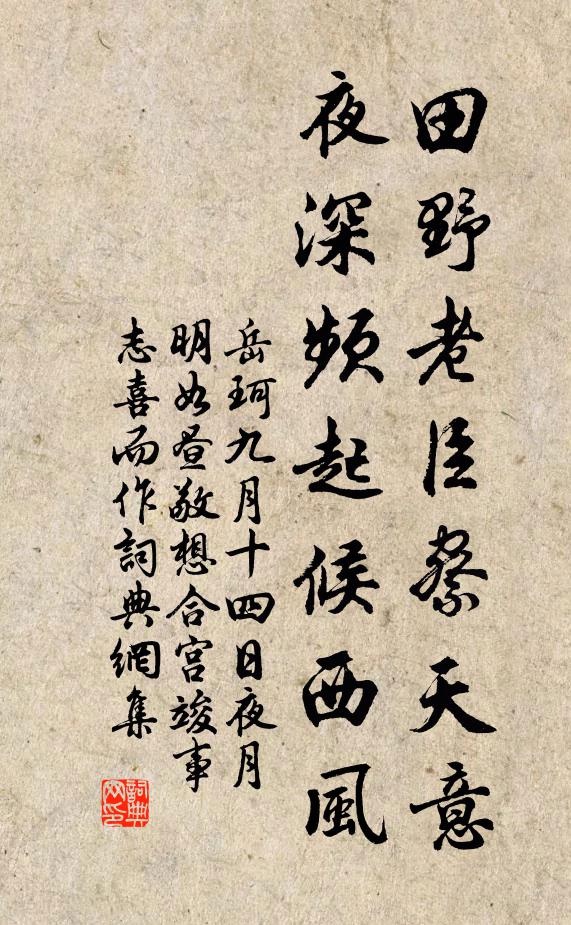 田野老臣察天意
夜深頻起候西風
岳珂九月十四日夜月
明如晝敬想合宮竣事
志喜而作詞典網集
詞典網印